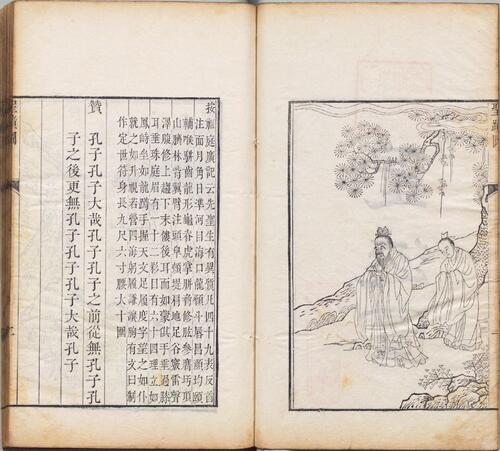 聖蹟圖
按祖庭廣記云先聖生有異質凡四十九表反首
洼面月角日準河目海口龍顙斗唇昌顏均頤
輔喉駢齒龍形龜脊虎掌胼脅修肱參膺圩頂
山臍林背翼臂注頭阜頰堤眉地足谷竅雷聲
澤腹修上趨下末僂後耳面如蒙倛手垂過膝
耳垂珠庭眉有一十二彩目有六十四理立如
鳳峙坐如龍蹲手握天文足履度字望之如仆
就之如升視若營四海躬履謙讓胸有文曰制
作定世符身長九尺六寸腰大十圍
贊 孔子孔子大哉孔子孔子之前從無孔子孔
子之後更無孔子孔子孔子大哉孔子
聖蹟圖